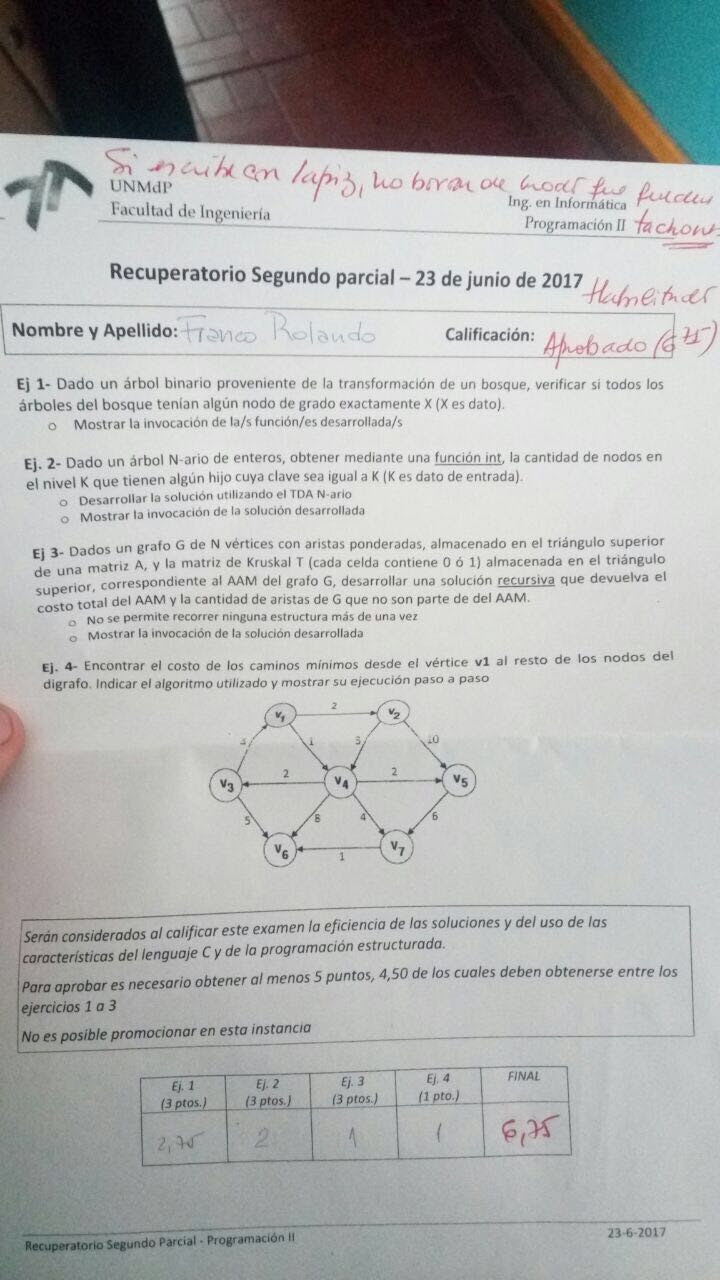 Si escribe en lapiz, no borran de modo que puedan
UNMdP
Facultad de Ingeniería
Ing. en Informática
Programación II
tachones
Recuperatorio Segundo parcial – 23 de junio de 2017
Nombre y Apellido: Franco Rolando
Calificación: Aprobado (6,75)
Ej 1- Dado un árbol binario proveniente de la transformación de un bosque, verificar si todos los
árboles del bosque tenían algún nodo de grado exactamente X (X es dato).
o Mostrar la invocación de la/s función/es desarrollada/s
Ej. 2- Dado un árbol N-ario de enteros, obtener mediante una función int, la cantidad de nodos en
el nivel K que tienen algún hijo cuya clave sea igual a K (K es dato de entrada).
o Desarrollar la solución utilizando el TDA N-ario
o Mostrar la invocación de la solución desarrollada
Ej 3- Dados un grafo G de N vértices con aristas ponderadas, almacenado en el triángulo superior
de una matriz A, y la matriz de Kruskal T (cada celda contiene 0 ó 1) almacenada en el triángulo
superior, correspondiente al AAM del grafo G, desarrollar una solución recursiva que devuelva el
costo total del AAM y la cantidad de aristas de G que no son parte de del AAM.
o No se permite recorrer ninguna estructura más de una vez
o Mostrar la invocación de la solución desarrollada
Ej. 4- Encontrar el costo de los caminos mínimos desde el vértice v1 al resto de los nodos del
digrafo. Indicar el algoritmo utilizado y mostrar su ejecución paso a paso
v1 2 v2
4 1 3 10
v3 2 v4 2 v5
5 8 4 6
v6 1 v7
Serán considerados al calificar este examen la eficiencia de las soluciones y del uso de las
características del lenguaje C y de la programación estructurada.
Para aprobar es necesario obtener al menos 5 puntos, 4,50 de los cuales deben obtenerse entre los
ejercicios 1 a 3
No es posible promocionar en esta instancia
Ej. 1 Ej. 2 Ej. 3 Ej. 4 FINAL
(3 ptos.) (3 ptos.) (3 ptos.) (1 pto.)
2,75 2 1 1 6,75
Recuperatorio Segundo Parcial - Programación II
23-6-2017